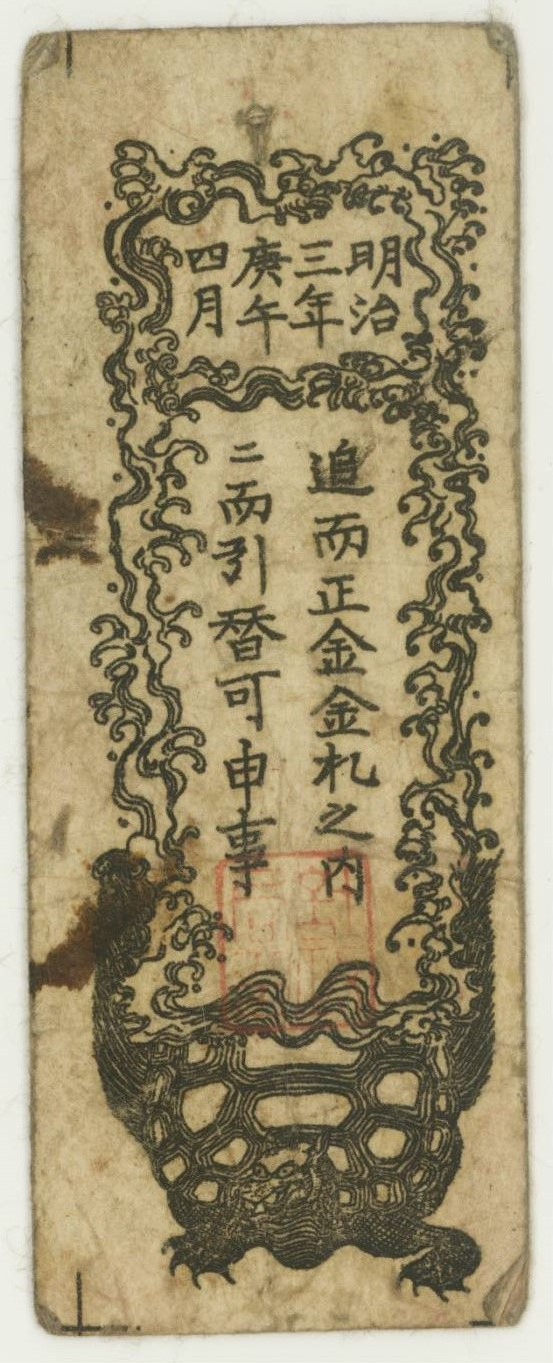 明治
三年
庚午
四月
追而正金金札之内
ニ而引替可申事